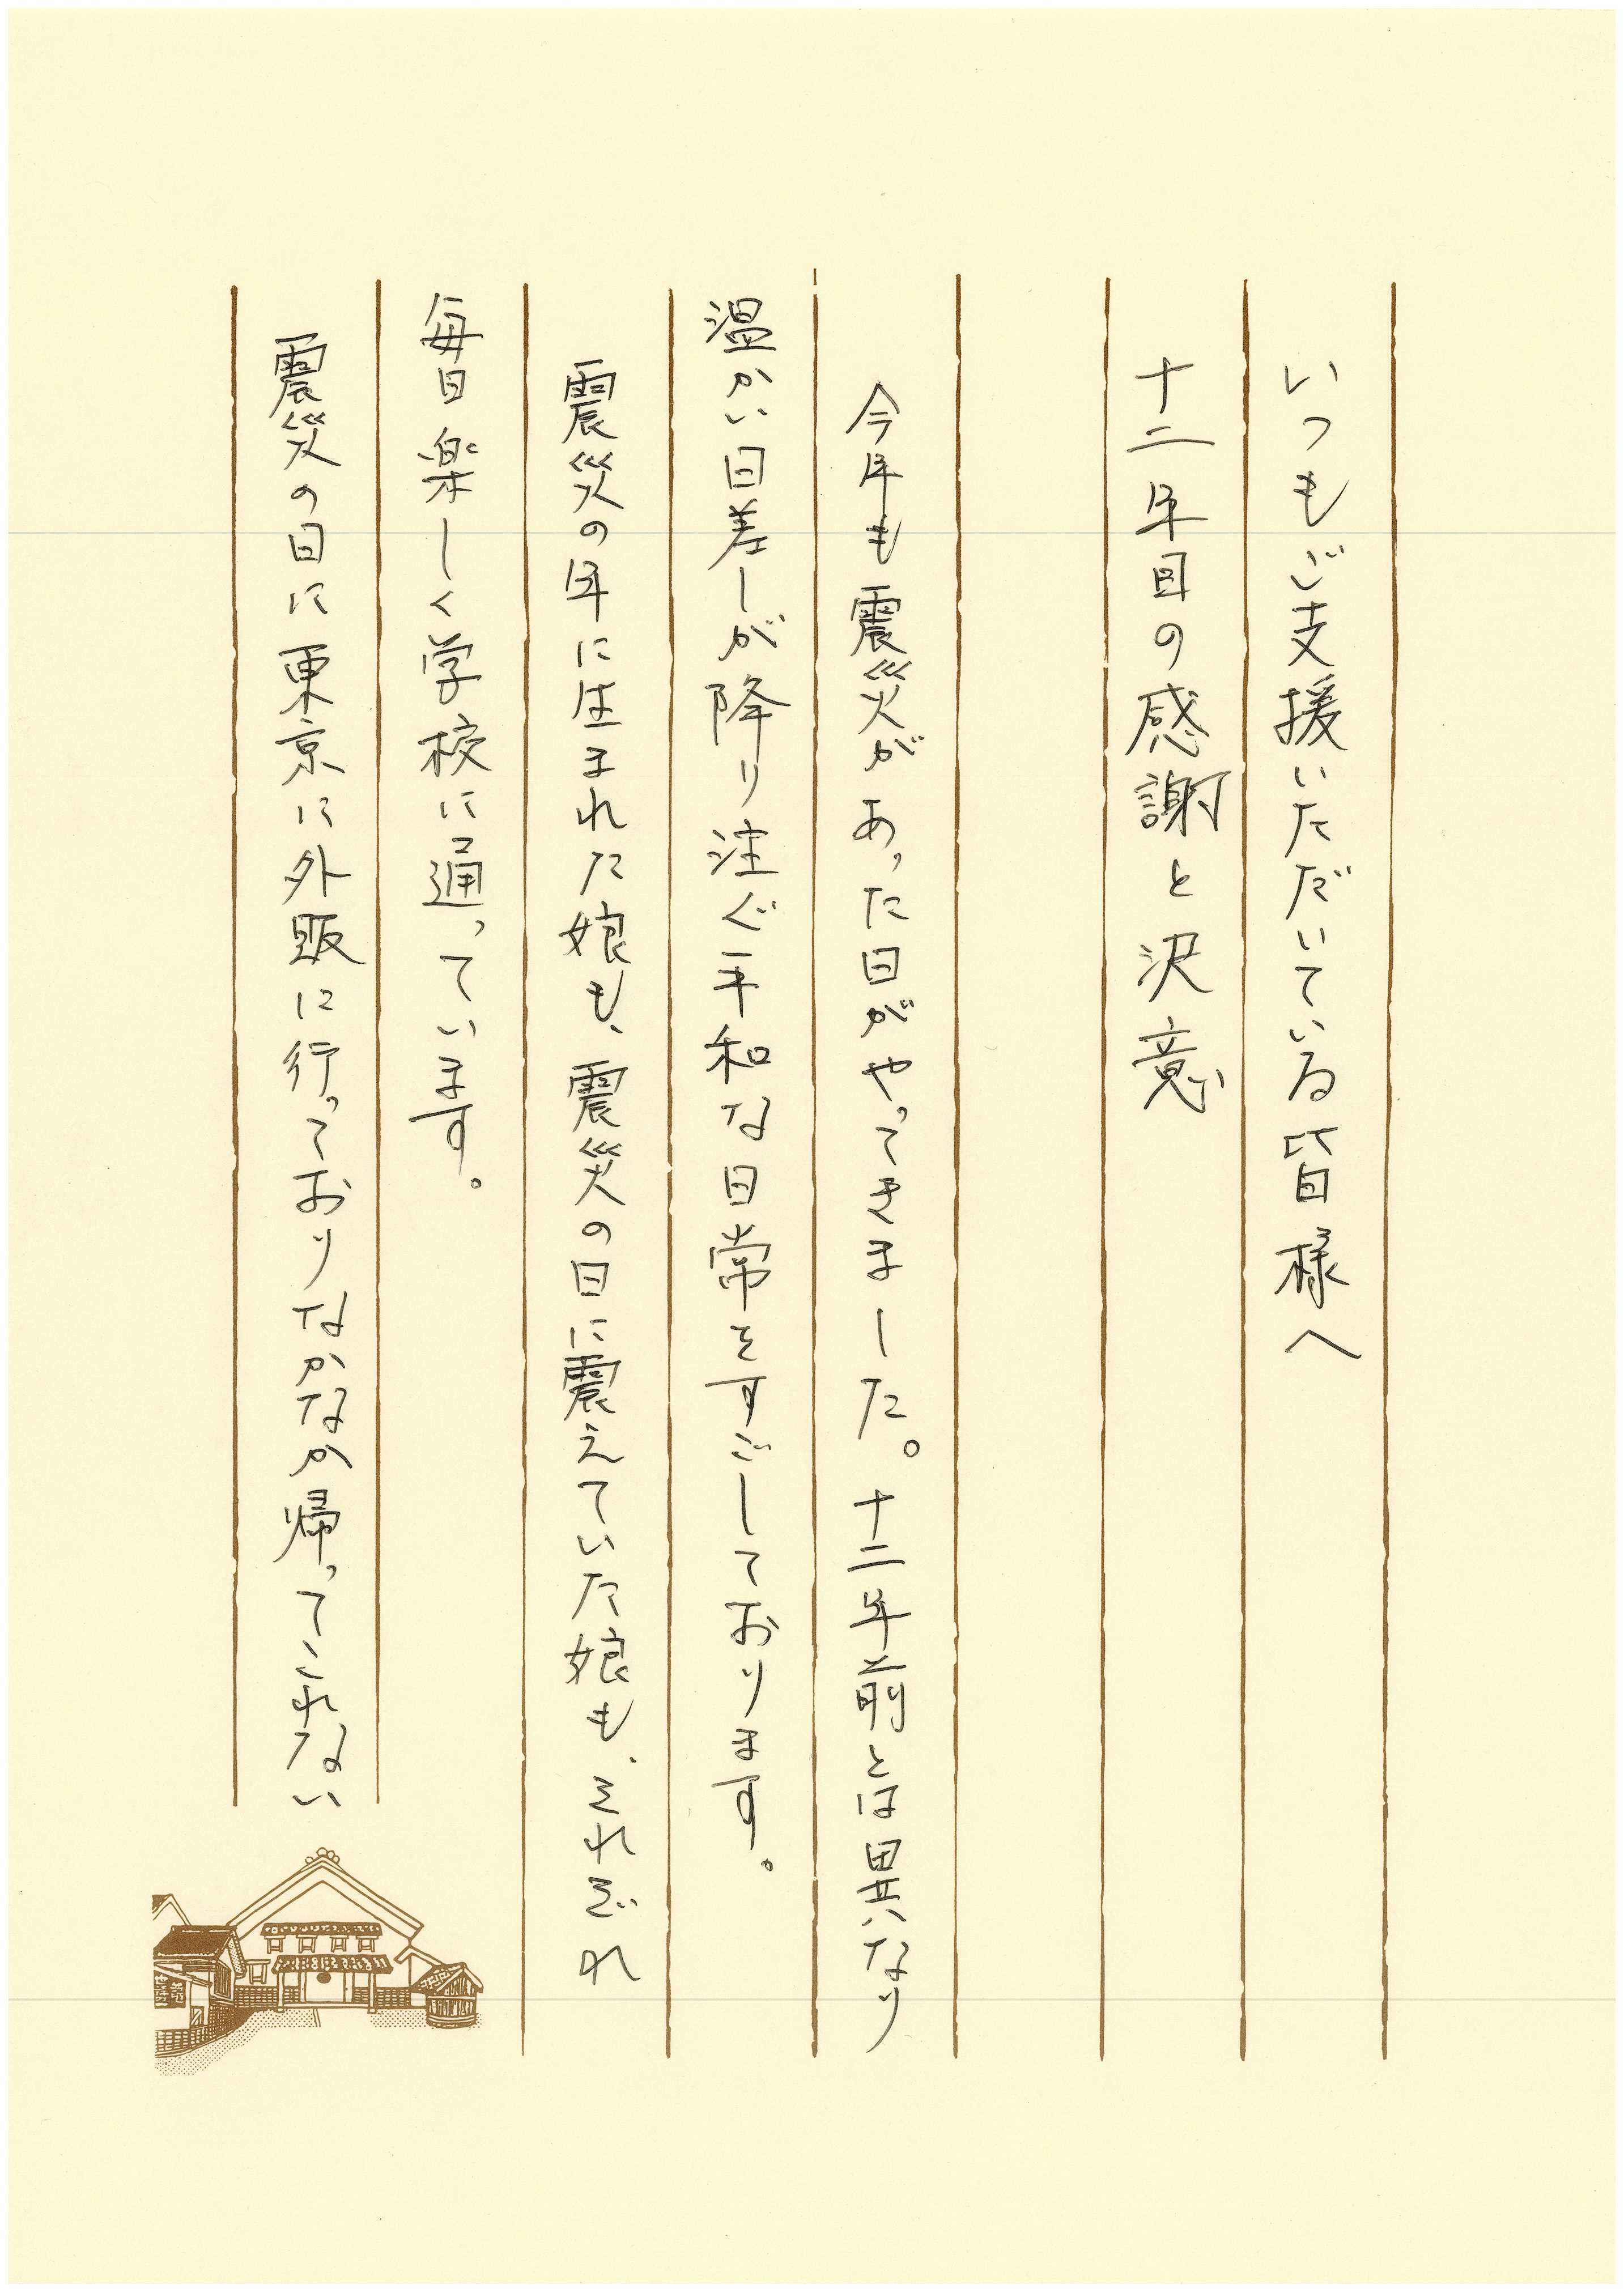 いつもご支援いただいている皆様へ
十二年目の感謝と決意
今年も震災があった日がやってきました。十二年前とは異なり
温かい日差しが降り注ぐ平和な日常をすごしております。
震災の年に生まれた娘も、震災の日に震えていた娘も、それぞれ
毎日楽しく学校に通っています。
震災の日に東京に外販に行っておりなかなか帰ってこれない